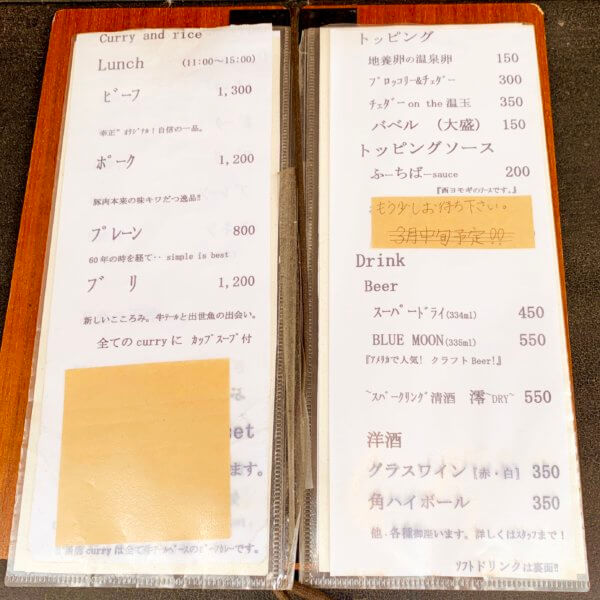 Curry and rice
Lunch (11:00~15:00)
ﾋﾞｰﾌ 1,300
幸正”ｵﾘｼﾞﾅﾙ！自信の一品。
ﾎﾟｰｸ 1,200
豚肉本来の味キワだつ逸品‼
ﾌﾟﾚｰﾝ 800
60年の時を経て‥ simple is best
ﾌﾞﾘ 1,200
新しいこころみ。牛ﾃｰﾙと出世魚の出会い。
全てのcurryに ｶｯﾌﾟｽｰﾌﾟ付
set
ます。
curryは全て牛ﾃｰﾙﾍﾞｰｽのﾋﾞｰﾌｶﾚｰです。
トッピング
地養卵の温泉卵 150
ﾌﾞﾛｯｺﾘｰ&ﾁｪﾀﾞｰ 300
ﾁｪﾀﾞｰ on the 温玉 350
バベル （大盛） 150
トッピングソース
ふーちばーsauce 200
『西ヨモギのｿｰｽです。』
もう少しお待ち下さい。
3月中旬予定!!
Drink
Beer
ｽｰﾊﾟｰドライ(334ml) 450
BLUE MOON(335ml) 550
『ｱﾒﾘｶで人気！ クラフトBeer!』
~ｽﾊﾟｰｸﾘﾝｸﾞ清酒 澪~DRY~ 550
洋酒
グラスワイン [赤・白] 350
角ハイボール 350
他・各種御座います。詳しくはｽﾀｯﾌまで！
ｿﾌﾄドリンクは裏面‼